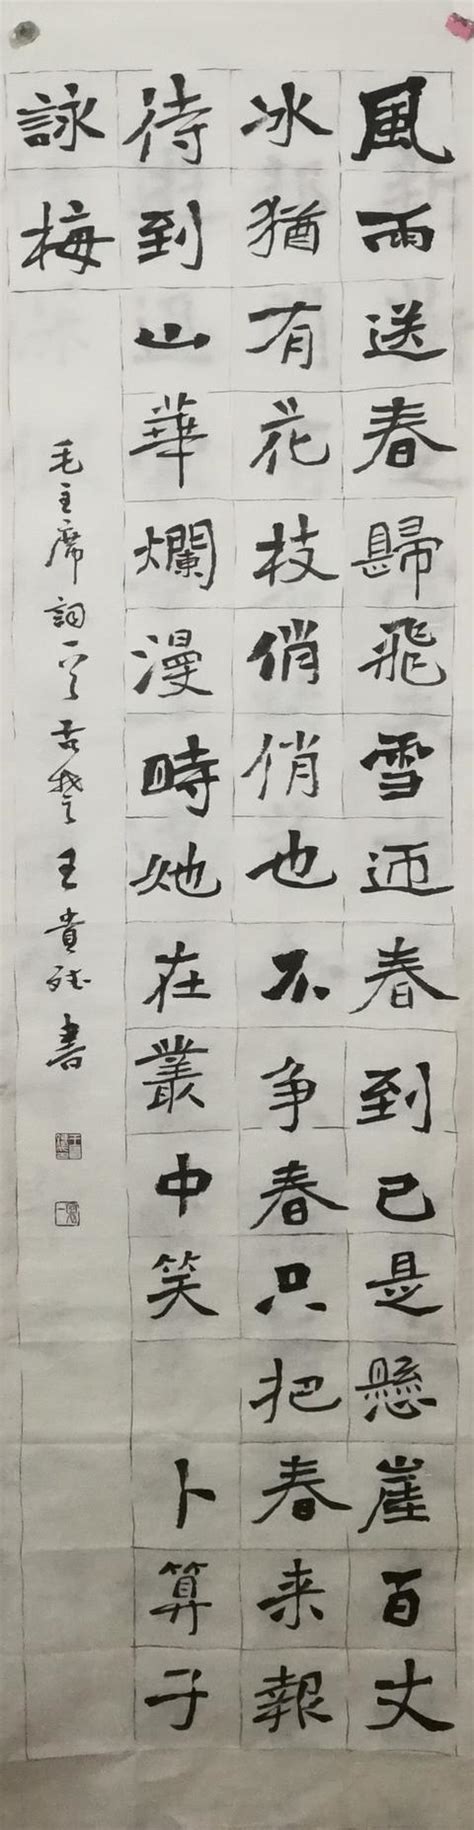 風雨送春歸飛雪迎春到已是懸崖百丈
冰猶有花枝俏俏也不争春只把春来報
待到山華爛漫時她在叢中笑 卜算子
詠梅
毛主席詞一首古楚王貴班書